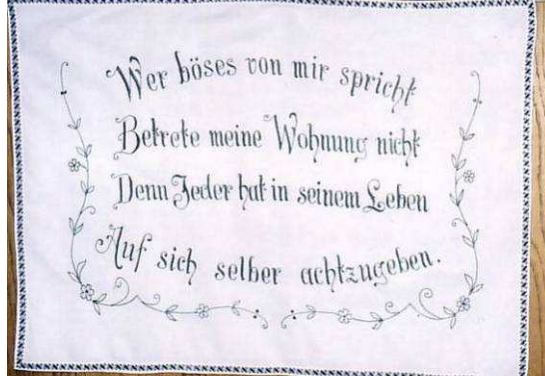 Wer böses von mir spricht
Betrete meine Wohnung nicht
Denn Jeder hat in seinem Leben
Auf sich selber achtzugeben.